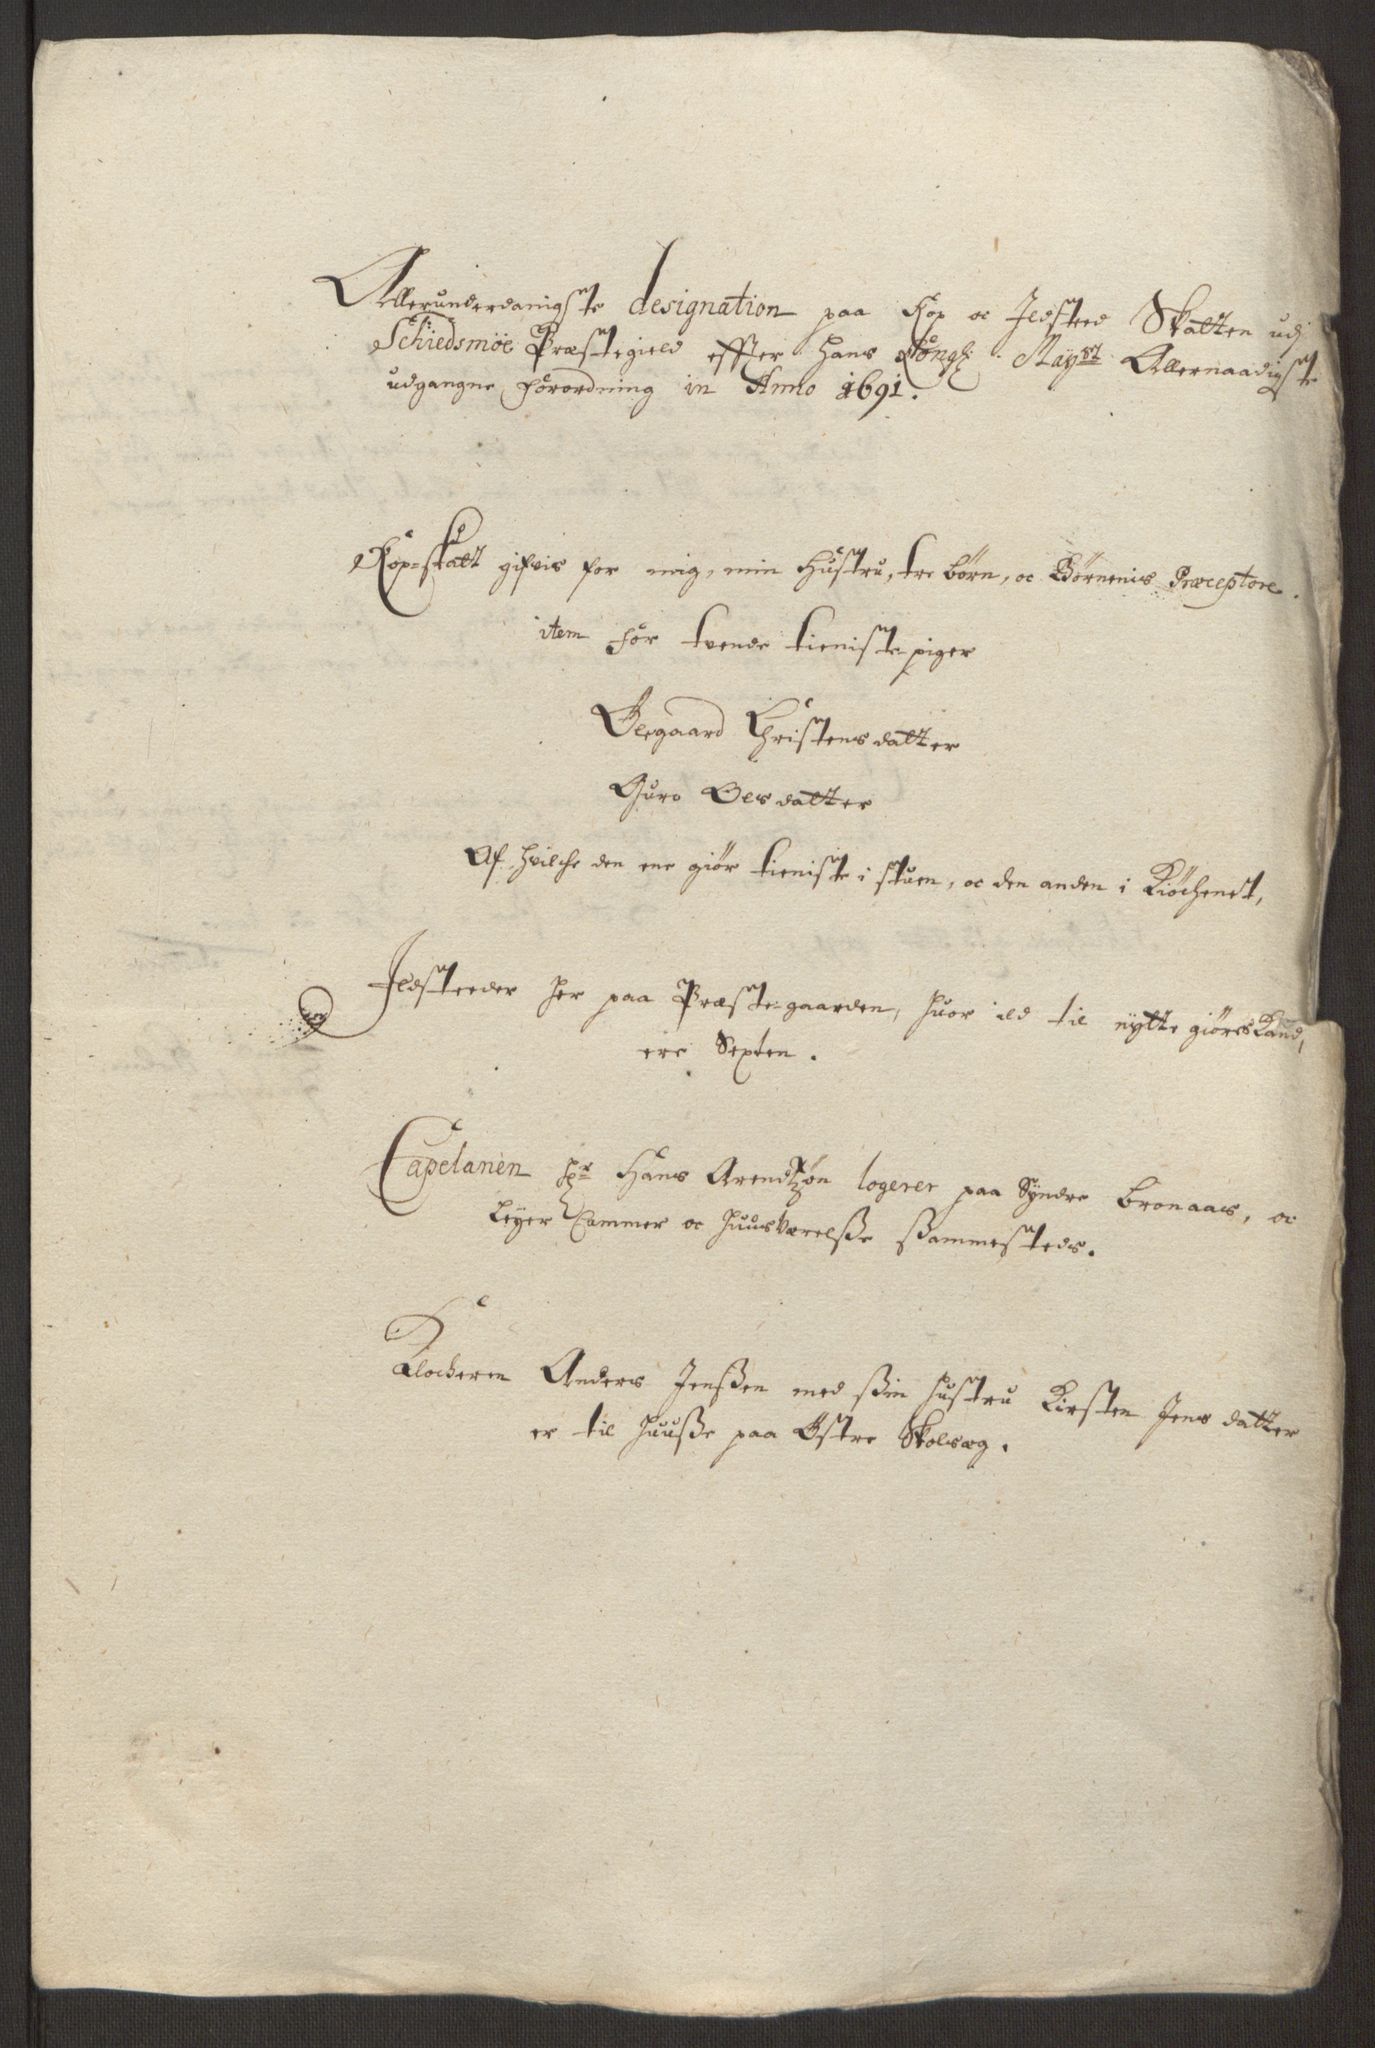 Allerunderdanigste designation paa Kop oc Ildsteed Skatten udj
Schiedsmöe Præstegield effter Hans Kongl: Mayst: Allernaadigste
udgangne forordning in Anno 1691.
Kop-skatt gifvis for mig, min Hustru, tre börn, oc Börnenis Præceptore.
item for tvende tieniste piger
Olegaard Christensdatter
Guro Olsdatter
Af hvilche den ene giör tieniste i stuen, oc den anden i Kiöchenet,
Ildsteeder her paa Præste-gaarden, huor ild til nÿtte giöres Kand,
ere Septen.
Capelanen Hr Hans Arendtzön logerer paa Syndre Bronaas, oc
Leÿer Cammer oc huusværelsse ssammesteds.
Klockeren Anders Jenssen med ssin hustru Kirsten Jens datter
er til huusse paa Östre Skolsæg.